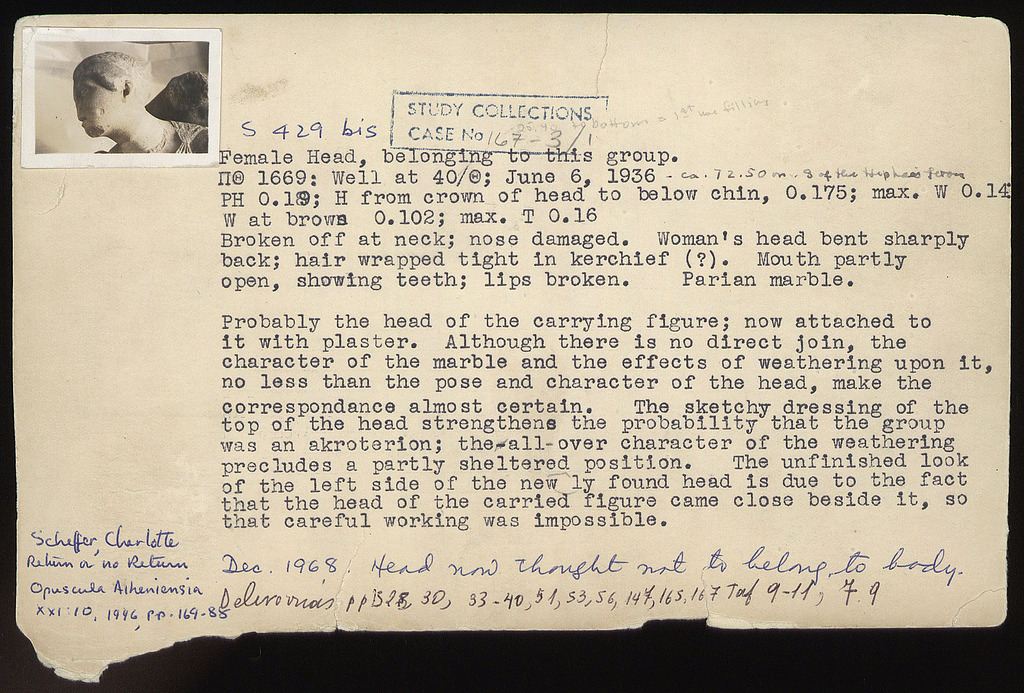 STUDY COLLECTIONS
CASE No 167-3/1
bottom = 1st use filling.
S 429 bis
Female Head, belonging to this group.
ΠΘ 1669: Well at 40/Θ; June 6, 1936 - ca. 72.50 m. S of the Hephaisteion
PH 0.18; H from crown of head to below chin, 0.175; max. W 0.14
W at brows 0.102; max. T 0.16
Broken off at neck; nose damaged. Woman's head bent sharply
back; hair wrapped tight in kerchief (?). Mouth partly
open, showing teeth; lips broken. Parian marble.
Probably the head of the carrying figure; now attached to
it with plaster. Although there is no direct join, the
character of the marble and the effects of weathering upon it,
no less than the pose and character of the head, make the
correspondance almost certain. The sketchy dressing of the
top of the head strengthens the probability that the group
was an akroterion; the all-over character of the weathering
precludes a partly sheltered position. The unfinished look
of the left side of the new ly found head is due to the fact
that the head of the carried figure came close beside it, so
that careful working was impossible.
Dec. 1968. Head now thought not to belong to body.
Delivorrias pp 30, 33-40, 51, 53, 56, 147, 165, 167 Taf 9-11, 7.9
Scheffer, Charlotte
Return or no Return
Opuscula Atheniensia
XXI:10, 1996, pp. 169-88